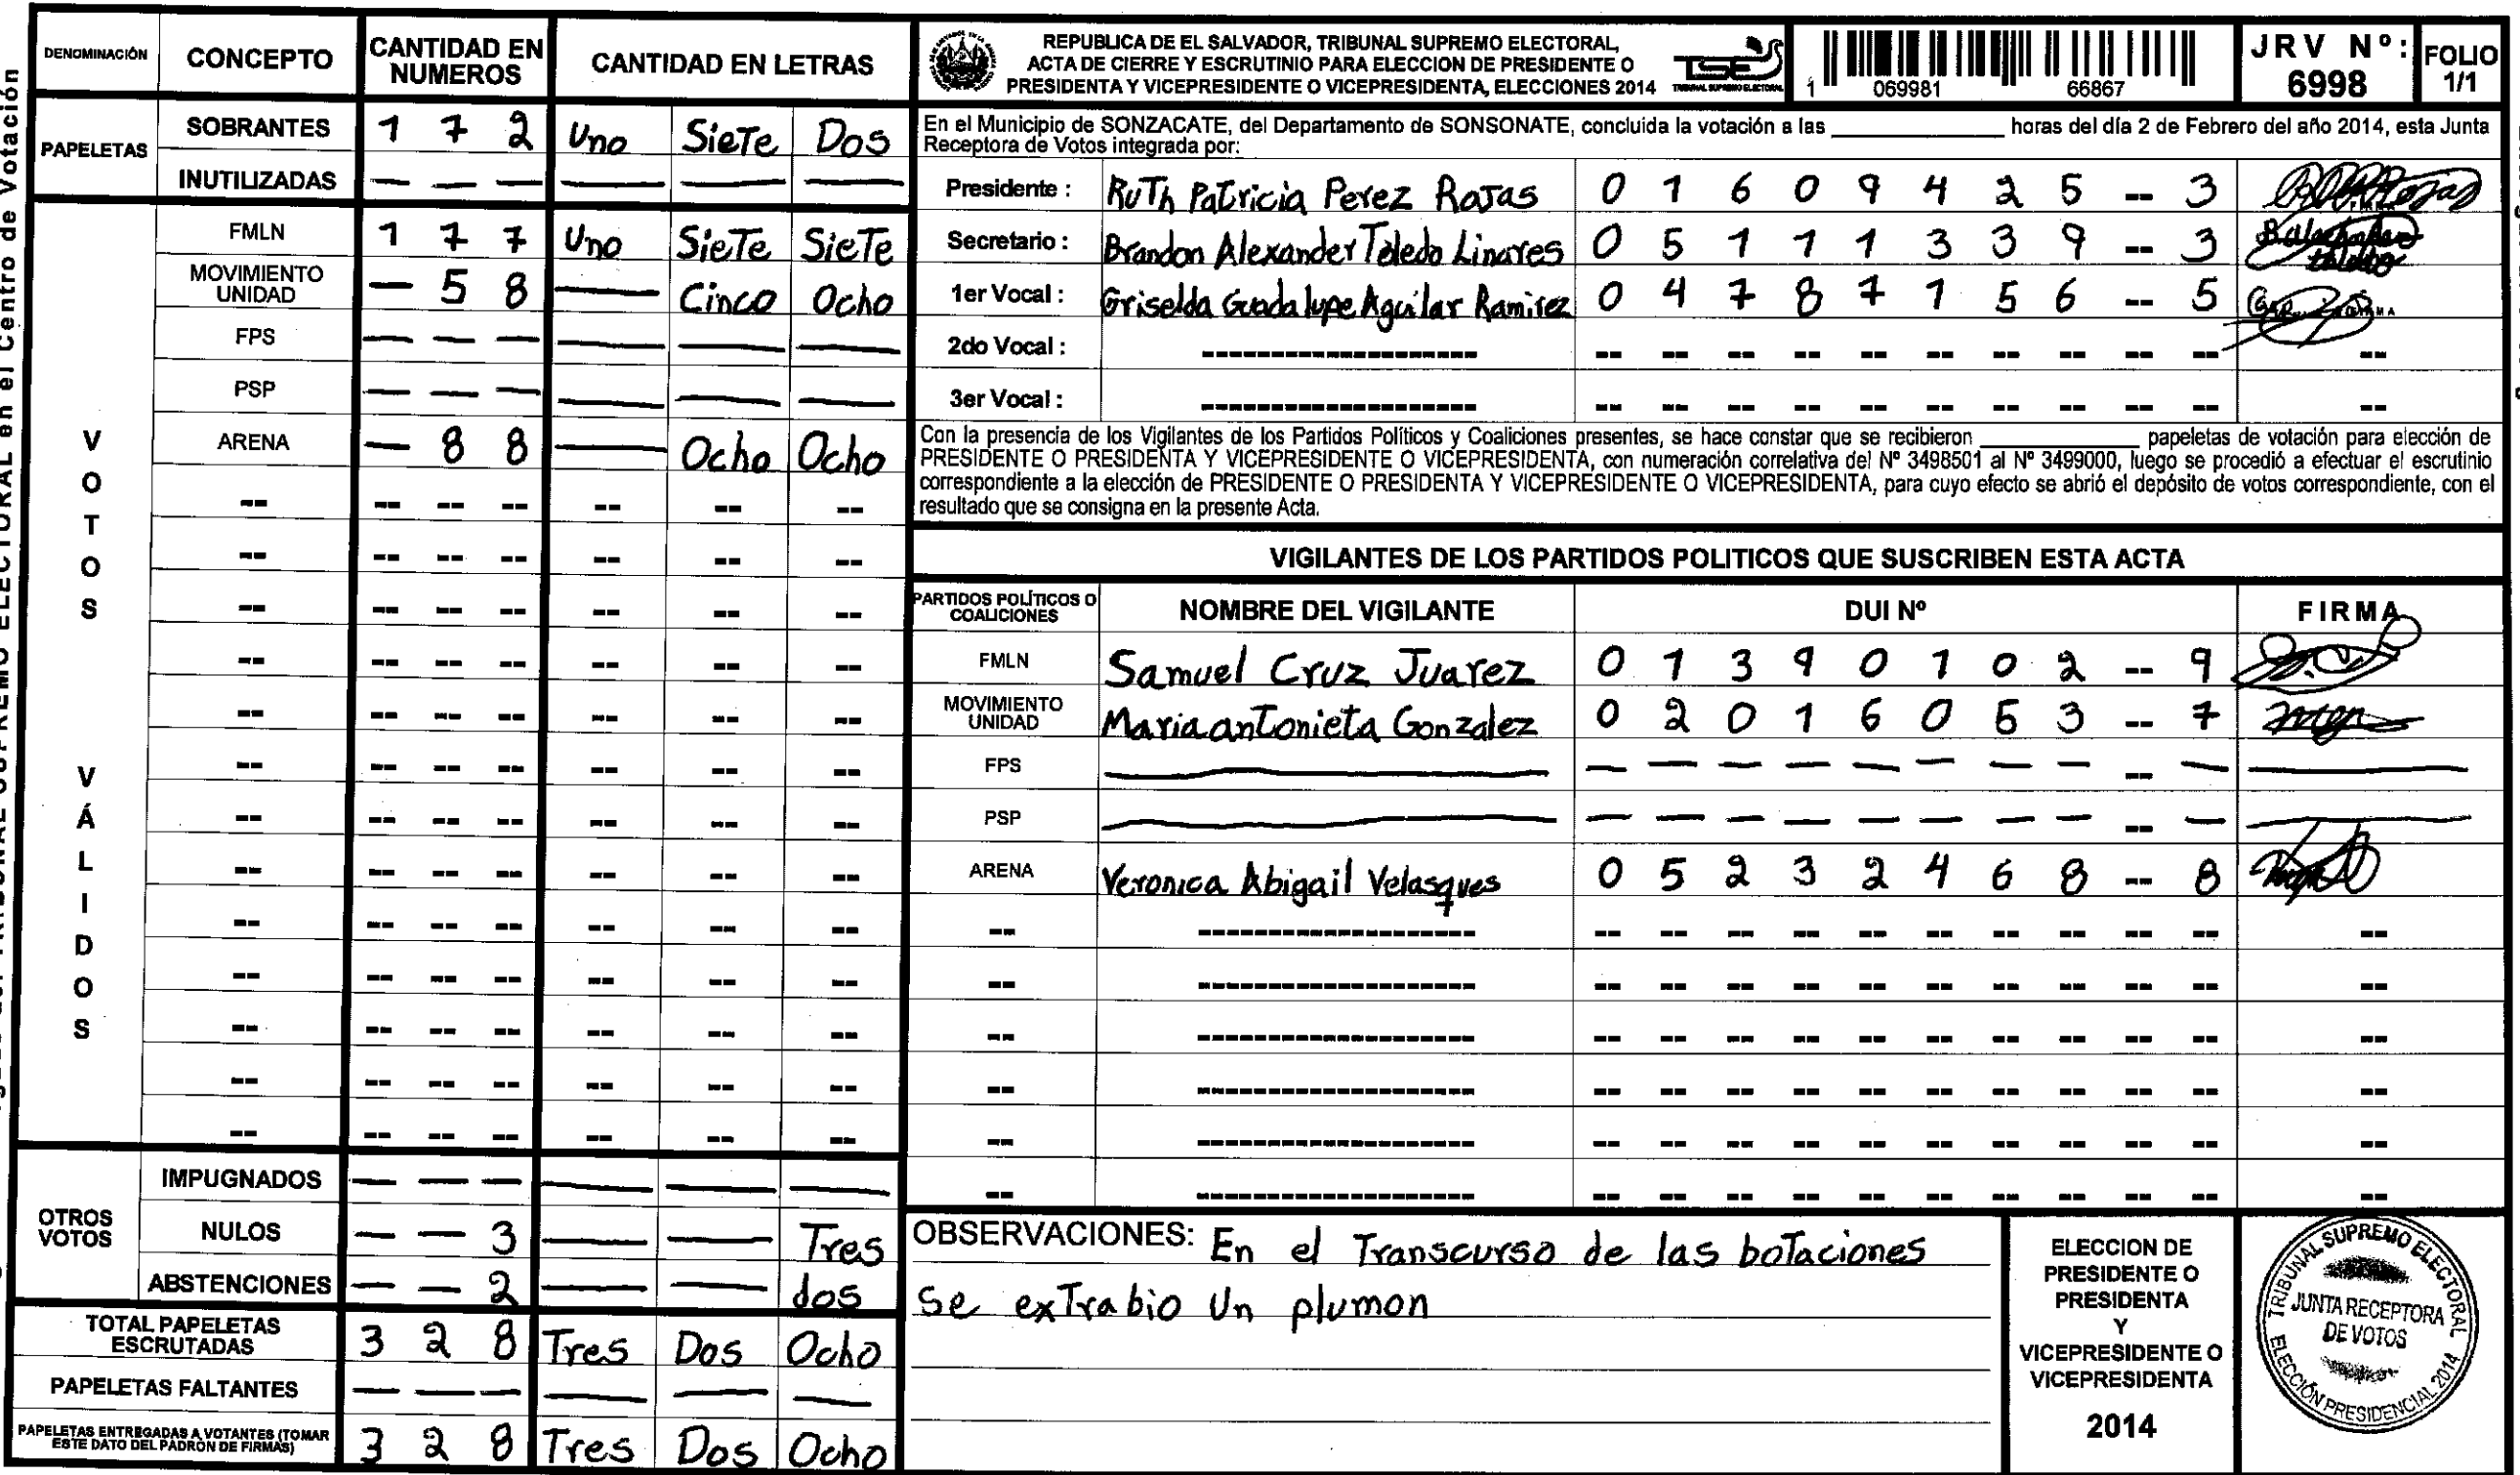 DENOMINACIÓN CONCEPTO CANTIDAD EN NUMEROS CANTIDAD EN LETRAS
PAPELETAS
SOBRANTES 1 7 2 Uno SieTe Dos
INUTILIZADAS — — — — — —
VOTOS VÁLIDOS
FMLN 1 7 7 Uno SieTe SieTe
MOVIMIENTO UNIDAD — 5 8 — Cinco Ocho
FPS — — — — — —
PSP — — — — — —
ARENA — 8 8 — Ocho Ocho
OTROS VOTOS
IMPUGNADOS — — — — — —
NULOS — — 3 — — Tres
ABSTENCIONES — — 2 — — dos
TOTAL PAPELETAS ESCRUTADAS 3 2 8 Tres Dos Ocho
PAPELETAS FALTANTES — — — — — —
PAPELETAS ENTREGADAS A VOTANTES (TOMAR ESTE DATO DEL PADRÓN DE FIRMAS) 3 2 8 Tres Dos Ocho
REPUBLICA DE EL SALVADOR, TRIBUNAL SUPREMO ELECTORAL,
ACTA DE CIERRE Y ESCRUTINIO PARA ELECCION DE PRESIDENTE O
PRESIDENTA Y VICEPRESIDENTE O VICEPRESIDENTA, ELECCIONES 2014
TSE
TRIBUNAL SUPREMO ELECTORAL
1 069981 66867
JRV Nº: 6998
FOLIO 1/1
En el Municipio de SONZACATE, del Departamento de SONSONATE, concluida la votación a las ____ horas del día 2 de Febrero del año 2014, esta Junta
Receptora de Votos integrada por:
Presidente : RuTh PaTricia Perez RoJas 0 1 6 0 9 4 2 5 -- 3
Secretario : Brandon Alexander Toledo Linares 0 5 1 1 1 3 3 9 -- 3
1er Vocal : Griselda Guadalupe Aguilar Ramirez 0 4 7 8 7 1 5 6 -- 5
2do Vocal :
3er Vocal :
Con la presencia de los Vigilantes de los Partidos Políticos y Coaliciones presentes, se hace constar que se recibieron ____ papeletas de votación para elección de
PRESIDENTE O PRESIDENTA Y VICEPRESIDENTE O VICEPRESIDENTA, con numeración correlativa del Nº 3498501 al Nº 3499000, luego se procedió a efectuar el escrutinio
correspondiente a la elección de PRESIDENTE O PRESIDENTA Y VICEPRESIDENTE O VICEPRESIDENTA, para cuyo efecto se abrió el depósito de votos correspondiente, con el
resultado que se consigna en la presente Acta.
VIGILANTES DE LOS PARTIDOS POLITICOS QUE SUSCRIBEN ESTA ACTA
PARTIDOS POLÍTICOS O COALICIONES NOMBRE DEL VIGILANTE DUI Nº FIRMA
FMLN Samuel Cruz Juarez 0 1 3 9 0 1 0 2 -- 9
MOVIMIENTO UNIDAD Maria anTonieta Gonzalez 0 2 0 1 6 0 5 3 -- 7
FPS
PSP
ARENA Veronica Abigail Velasques 0 5 2 3 2 4 6 8 -- 8
OBSERVACIONES: En el Transcurso de las boTaciones
Se exTrabio Un plumon
ELECCION DE
PRESIDENTE O
PRESIDENTA
Y
VICEPRESIDENTE O
VICEPRESIDENTA
2014
TRIBUNAL SUPREMO ELECTORAL
JUNTA RECEPTORA
DE VOTOS
ELECCIÓN PRESIDENCIAL 2014
en el Centro de Votación